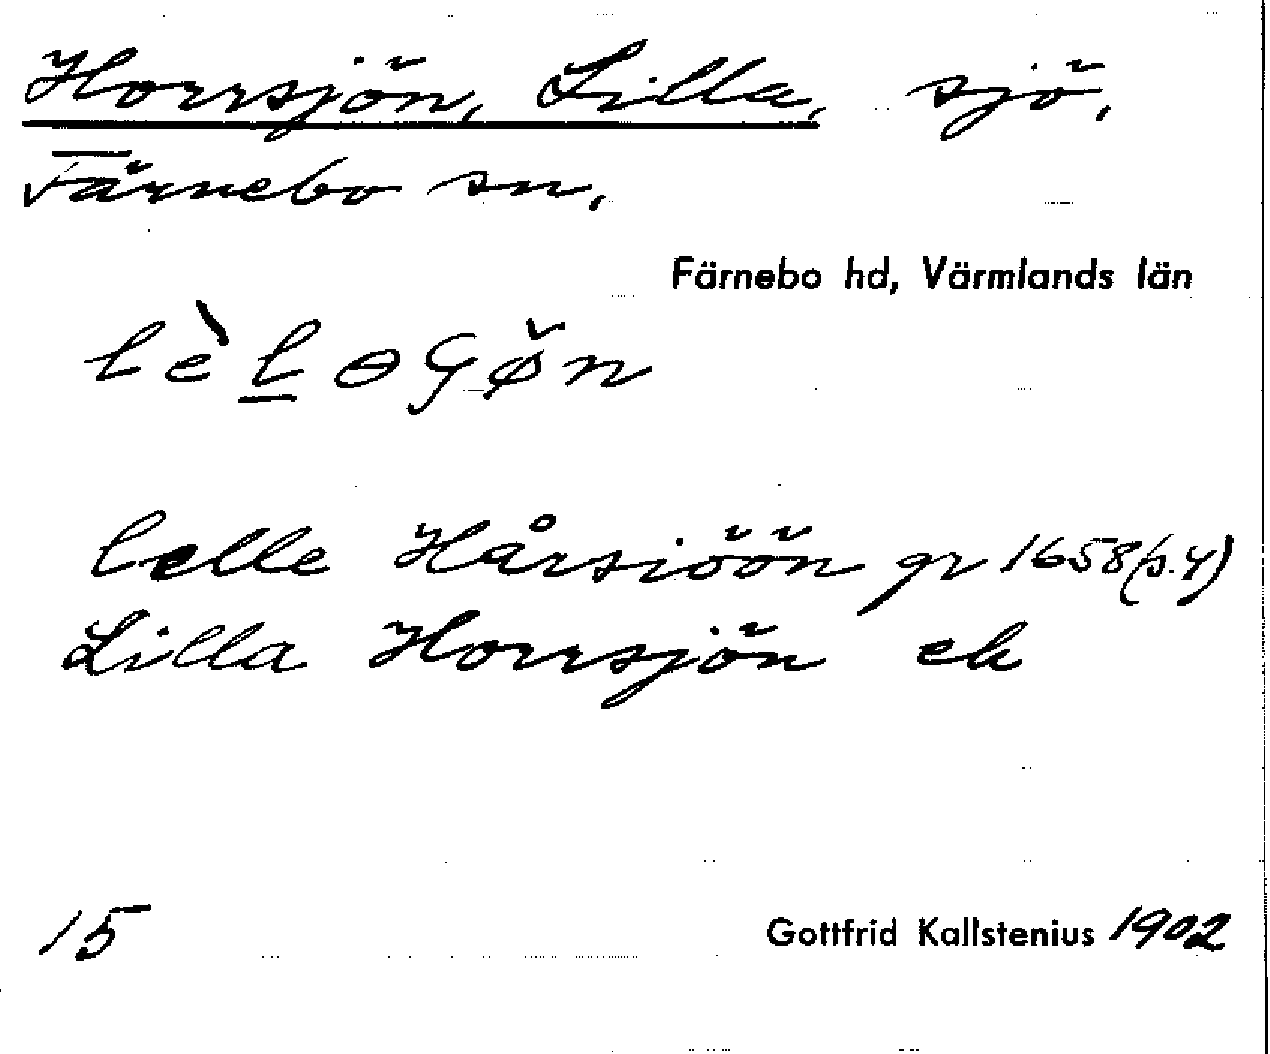 Horrsjön, Lilla, sjö,
Färnebo sn,
Färnebo hd, Värmlands län
lèlɵGøn
lelle Hårsiöön gr 1658 (s. 4)
Lilla Horrsjön ek
15 Gottfrid Kallstenius 1902